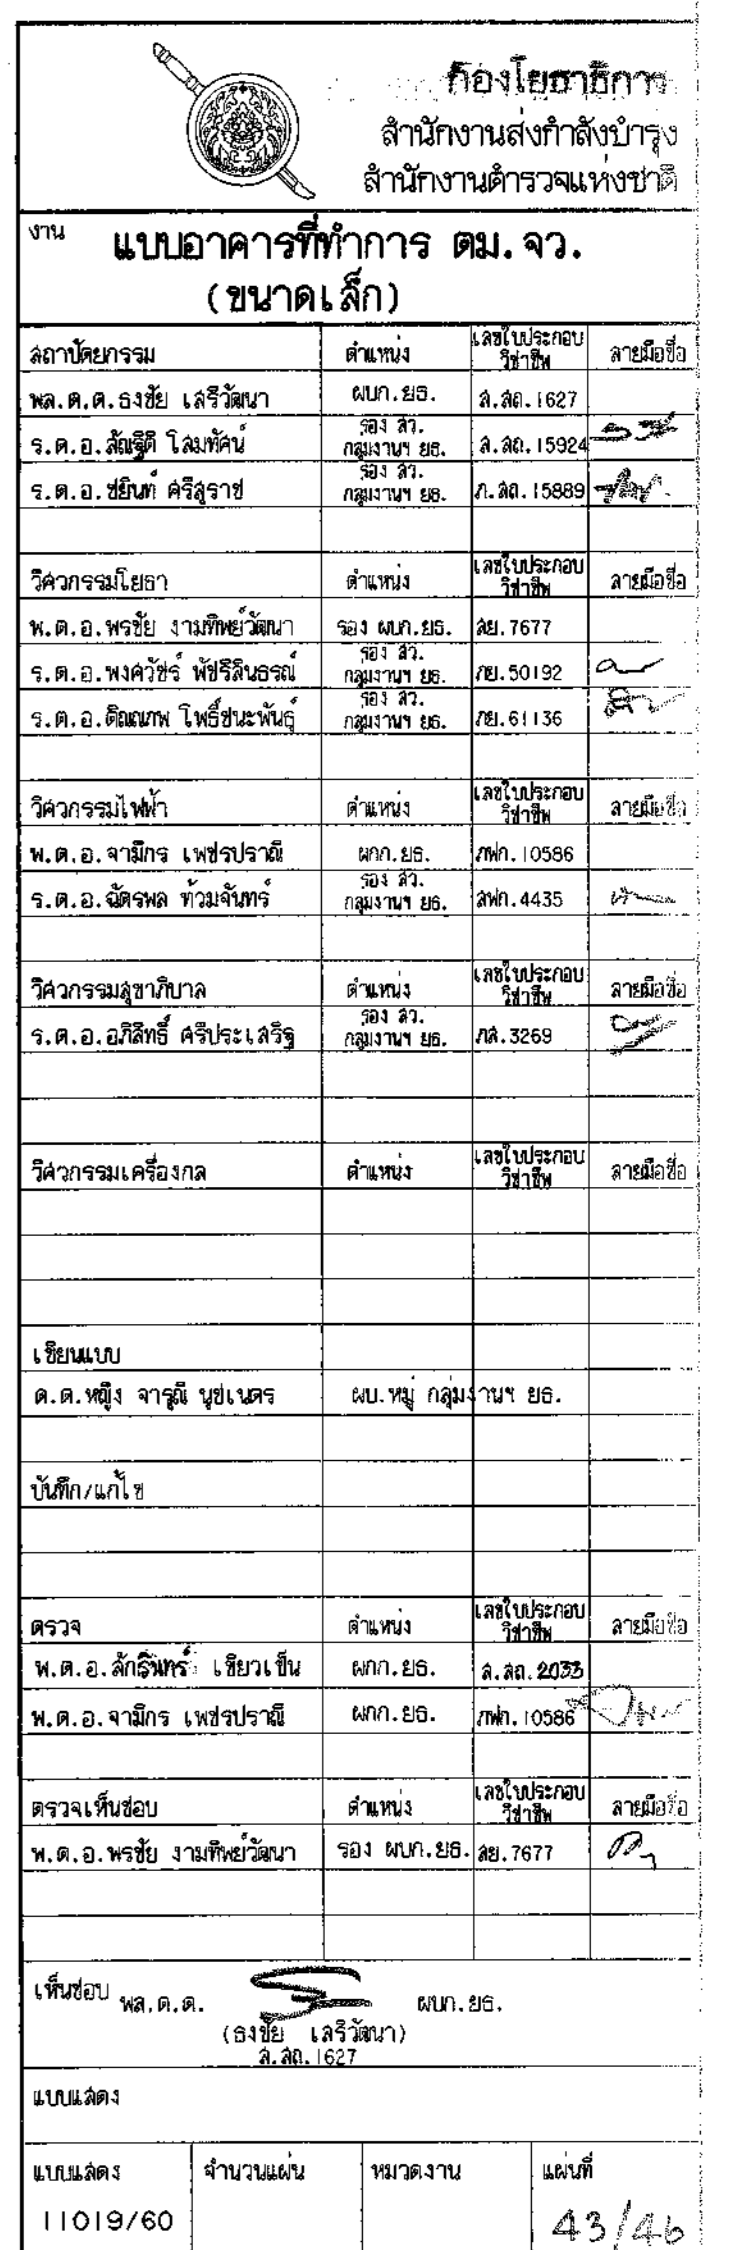 กองโยธาธิการ
สำนักงานส่งกำลังบำรุง
สำนักงานตำรวจแห่งชาติ
งาน แบบอาคารที่ทำการ ตม.จว.
(ขนาดเล็ก)
สถาปัตยกรรม ตำแหน่ง เลขใบประกอบวิชาชีพ ลายมือชื่อ
พล.ต.ต.ธงชัย เสรีวัฒนา ผบก.ยธ. ส.สถ.1627
ร.ต.อ.สัณฐิติ โสมทัศน์ รอง สว. กลุ่มงานฯ ยธ. ส.สถ.15924
ร.ต.อ.ชยินท์ ศรีสุราช รอง สว. กลุ่มงานฯ ยธ. ภ.สถ.15889
วิศวกรรมโยธา ตำแหน่ง เลขใบประกอบวิชาชีพ ลายมือชื่อ
พ.ต.อ.พรชัย งามทิพย์วัฒนา รอง ผบก.ยธ. สย.7677
ร.ต.อ.พงศวัชร์ พัชรีสินธรณ์ รอง สว. กลุ่มงานฯ ยธ. ภย.50192
ร.ต.อ.ติณณภพ โพธิ์ชนะพันธุ์ รอง สว. กลุ่มงานฯ ยธ. ภย.61136
วิศวกรรมไฟฟ้า ตำแหน่ง เลขใบประกอบวิชาชีพ ลายมือชื่อ
พ.ต.อ.จามีกร เพชรปราณี ผกก.ยธ. ภฟก.10586
ร.ต.อ.ฉัตรพล ท้วมจันทร์ รอง สว. กลุ่มงานฯ ยธ. สฟก.4435
วิศวกรรมสุขาภิบาล ตำแหน่ง เลขใบประกอบวิชาชีพ ลายมือชื่อ
ร.ต.อ.อภิสิทธิ์ ศรีประเสริฐ รอง สว. กลุ่มงานฯ ยธ. ภส.3269
วิศวกรรมเครื่องกล ตำแหน่ง เลขใบประกอบวิชาชีพ ลายมือชื่อ
เขียนแบบ
ด.ต.หญิง จารุณี นุชเนตร ผบ.หมู่ กลุ่มงานฯ ยธ.
บันทึก/แก้ไข
ตรวจ ตำแหน่ง เลขใบประกอบวิชาชีพ ลายมือชื่อ
พ.ต.อ.ลักรินทร์ เขียวเซ็น ผกก.ยธ. ส.สถ.2033
พ.ต.อ.จามีกร เพชรปราณี ผกก.ยธ. ภฟก.10586
ตรวจเห็นชอบ ตำแหน่ง เลขใบประกอบวิชาชีพ ลายมือชื่อ
พ.ต.อ.พรชัย งามทิพย์วัฒนา รอง ผบก.ยธ. สย.7677
เห็นชอบ พล.ต.ต. ผบก.ยธ.
(ธงชัย เสรีวัฒนา)
ส.สถ.1627
แบบแสดง
แบบแสดง จำนวนแผ่น หมวดงาน แผ่นที่
11019/60 43/46